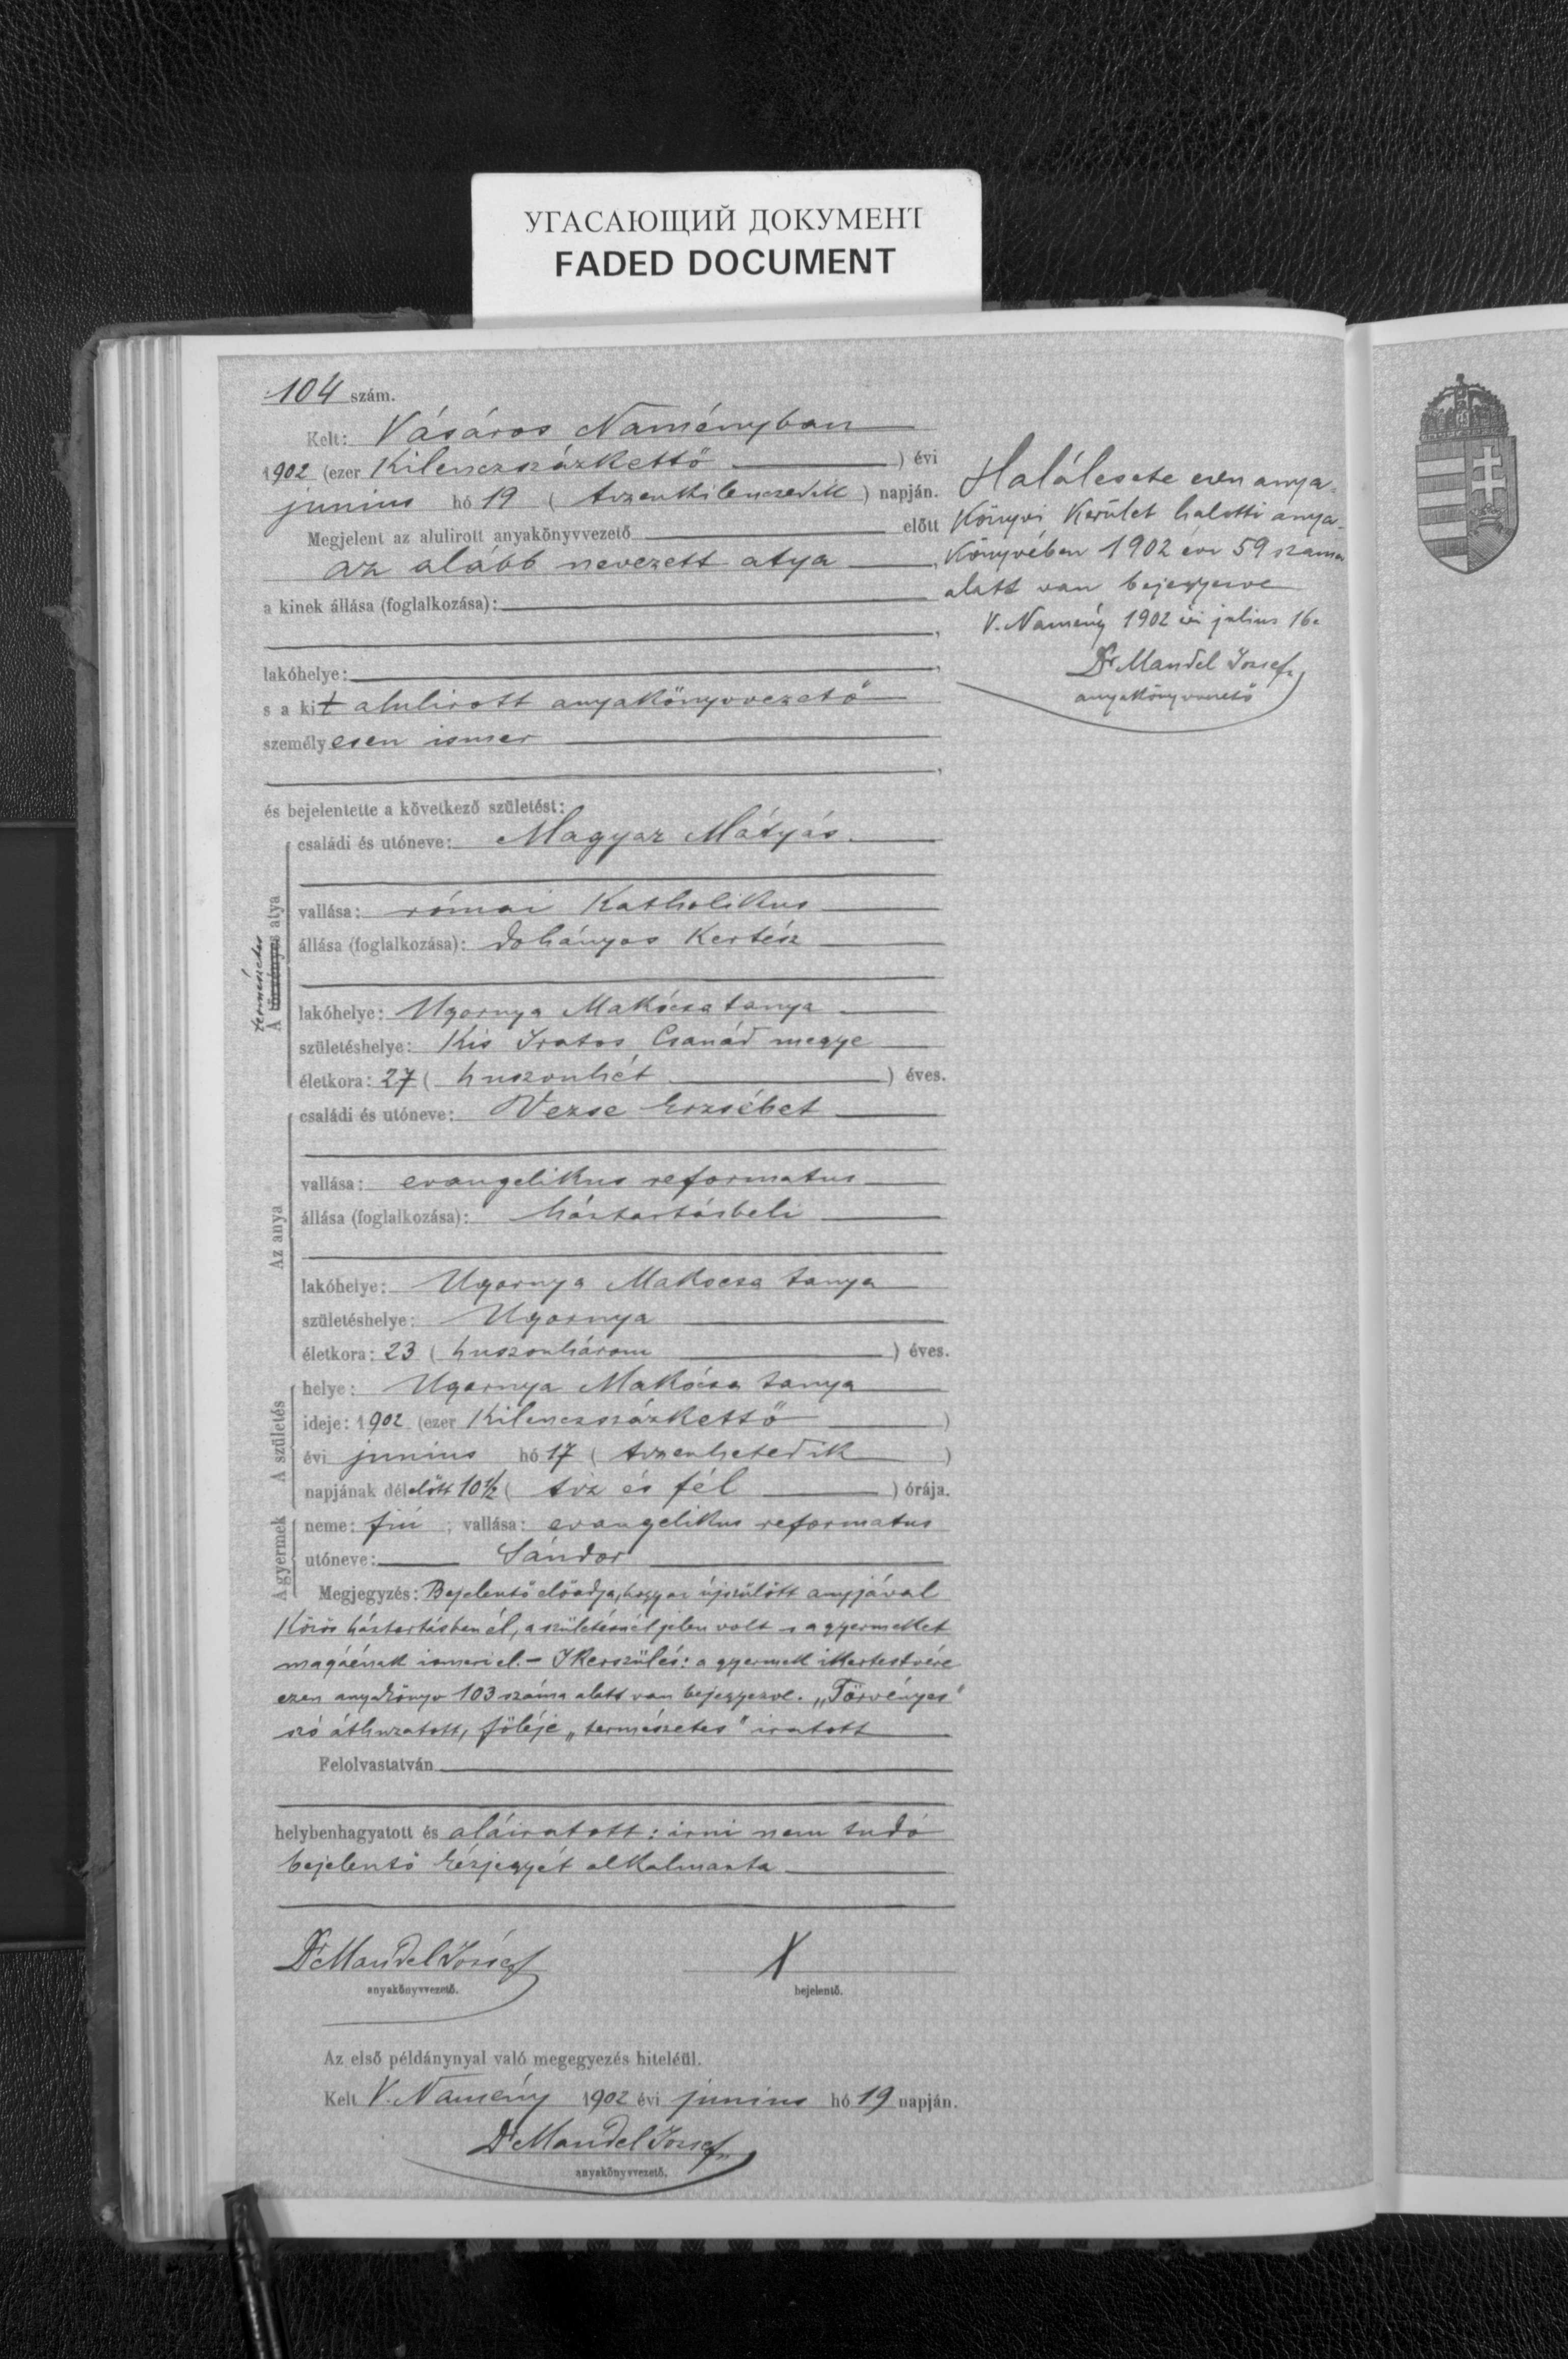 УГАСАЮЩИЙ ДОКУМЕНТ
FADED DOCUMENT
104 szám.
Kelt: Vásáros Naményban
1902 (ezer Kilenczszázkettő) évi
junius hó 19 (tizenkilenczedik) napján.
Megjelent az alulirott anyakönyvvezető előtt
az alább nevezett atya,
a kinek állása (foglalkozása):
lakóhelye:
s a kit alulirott anyakönyvvezető
személyesen ismer
és bejelentette a következő születést:
A törvényes atya
természetes
családi és utóneve: Magyar Mátyás.
vallása: római Katholikus
állása (foglalkozása): dohányos Kertész
lakóhelye: Ugornya Makócsa tanya
születéshelye: Kis Iratos Csanád megye
életkora: 27 (huszonhét) éves.
Az anya
családi és utóneve: Vezse Erzsébet
vallása: evangelikus reformatus
állása (foglalkozása): háztartásbeli
lakóhelye: Ugornya Makocsa tanya
születéshelye: Ugornya
életkora: 23 (huszonhárom) éves.
A születés
helye: Ugornya Makócsa tanya
ideje: 1902 (ezer Kilenczszázkettő)
évi junius hó 17 (tizenhetedik)
napjának délelőtt 10½ (tiz és fél) órája.
A gyermek
neme: fiú; vallása: evangelikus reformatus
utóneve: Sándor
Megjegyzés: Bejelentő előadja, hogy az újszülött anyjával
Közös háztartásban él, a születésnél jelen volt s a gyermeket
magáénak ismeri el. – Ikerszülés: a gyermek ikertestvére
ezen anyakönyv 103 száma alatt van bejegyezve. „Törvényes"
szó áthuzatott, föléje „természetes" iratott
Felolvastatván
helybenhagyatott és aláiratott: irni nem tudó
bejelentő kézjegyét alkalmazta
Dr Mandel József
anyakönyvvezető.
X
bejelentő.
Az első példánynyal való megegyezés hiteléül.
Kelt V. Namény 1902 évi junius hó 19 napján.
Dr Mandel József
anyakönyvvezető.
Halálesete ezen anya-
Könyvi Kerület halotti anya-
Könyvében 1902 évi 59 száma
alatt van bejegyezve
V. Namény 1902 évi julius 16.
Dr Mandel József
anyakönyvvezető